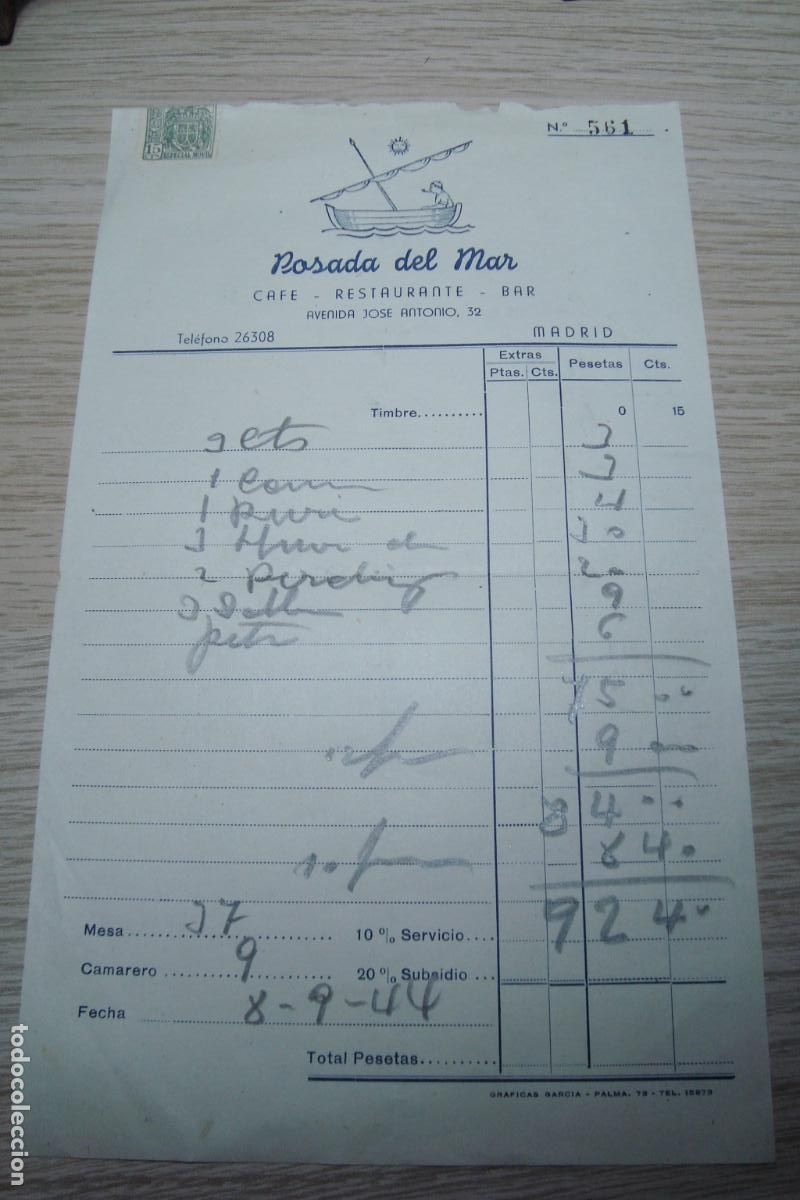 15
CTS
ESPECIAL MOVIL
N.º 561
Posada del Mar
CAFE - RESTAURANTE - BAR
AVENIDA JOSE ANTONIO, 32
Teléfono 26308 MADRID
Extras Pesetas Cts.
Ptas. Cts.
Timbre.......... 0 15
3
1 3
1 4
3 30
2 Perdiz 20
9
6
75
9
84
10 8 40
92 4
Mesa 37 10 % Servicio....
Camarero 9 20 % Subsidio ...
Fecha 8-9-44
Total Pesetas..........
GRAFICAS GARCIA - PALMA, 73 - TEL. 15873
todocoleccion